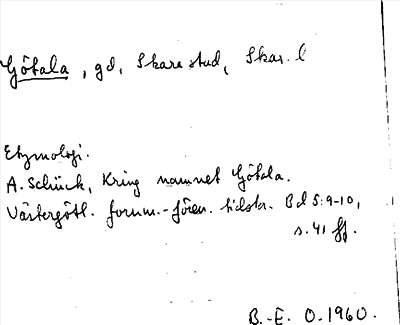 Götala, gd, Skara stad, Skar. l
Etymologi.
A. Schück, Kring namnet Götala.
Västergötl. fornm.-fören. tidskr. Bd 5:9-10,
s. 41 ff.
B.-E. O. 1960.